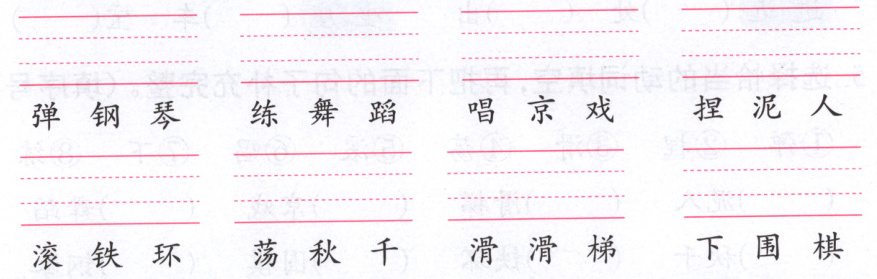 弹钢琴 练舞蹈 唱京戏 捏泥人
滚铁环 荡秋千 滑滑梯 下围棋